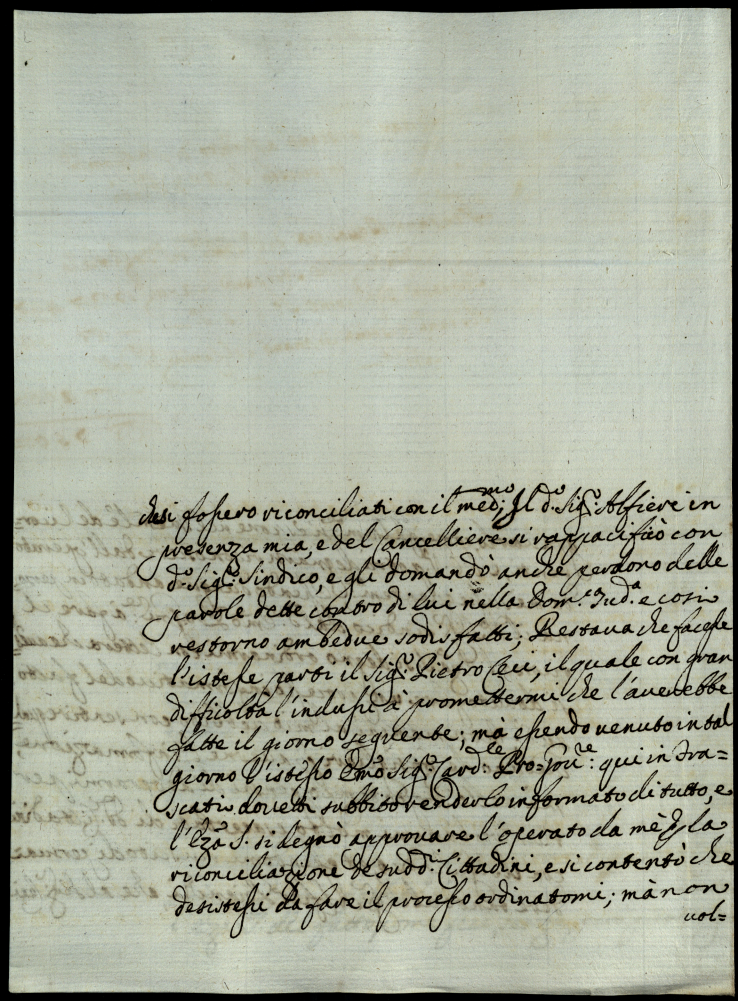 desi fossero riconciliati con il med.mo; Il d.o Sig.r Alfiere in
presenza mia, e del Cancelliere si rappacificò con
d.o Sig.r Sindico, e gli domandò anche perdono delle
parole dette contro di lui nella Dom.ca Sud.a e così
restorno ambedue sodisfatti; Restava che facesse
l'istesse parti il Sig.r Pietro Ceci, il quale con gran
difficoltà l'indussi à promettermi che l'averebbe
fatte il giorno seguente; mà essendo venuto in tal
giorno l'istesso Em̃o Sig.r Card.le Pro=Gov.re: qui in Fra=
scati dovetti subbito renderlo informato di tutto, e
l'Eza S. si degnò approvare l'operato da mè p la
riconciliazione de sudd.i Cittadini, e si contentò che
desistessi da fare il processo ordinatomi; mà non
vol=